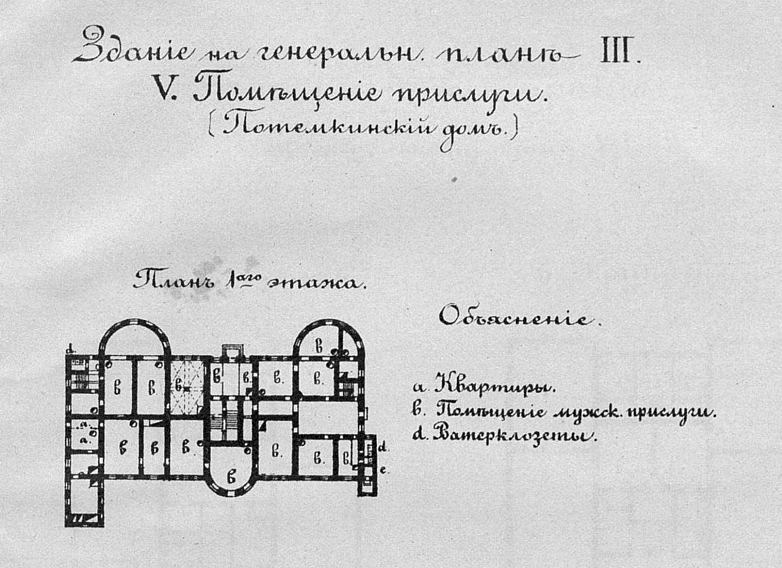 Зданіе на генеральн. планѣ III.
V. Помѣщеніе прислуги.
(Потемкинскій домъ.)
Планъ 1аго этажа.
Объясненіе.
a. Квартиры.
в. Помѣщеніе мужск. прислуги.
d. Ватерклозеты.
d.
в
в
в
в.
в
в.
в.
в.
в
в
в
в
в.
в.
в.
d.
e.